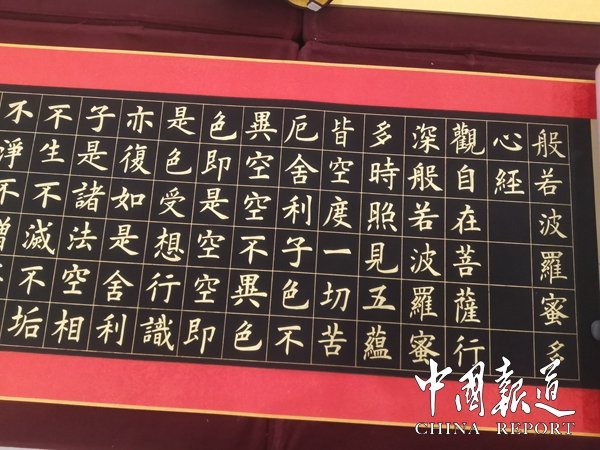 般若波羅蜜多
心經
觀自在菩薩行
深般若波羅蜜
多時照見五蘊
皆空度一切苦
厄舍利子色不
異空空不異色
色即是空空即
是色受想行識
亦復如是舍利
子是諸法空相
不生不滅不垢
不淨不增
中國報道
CHINA REPORT